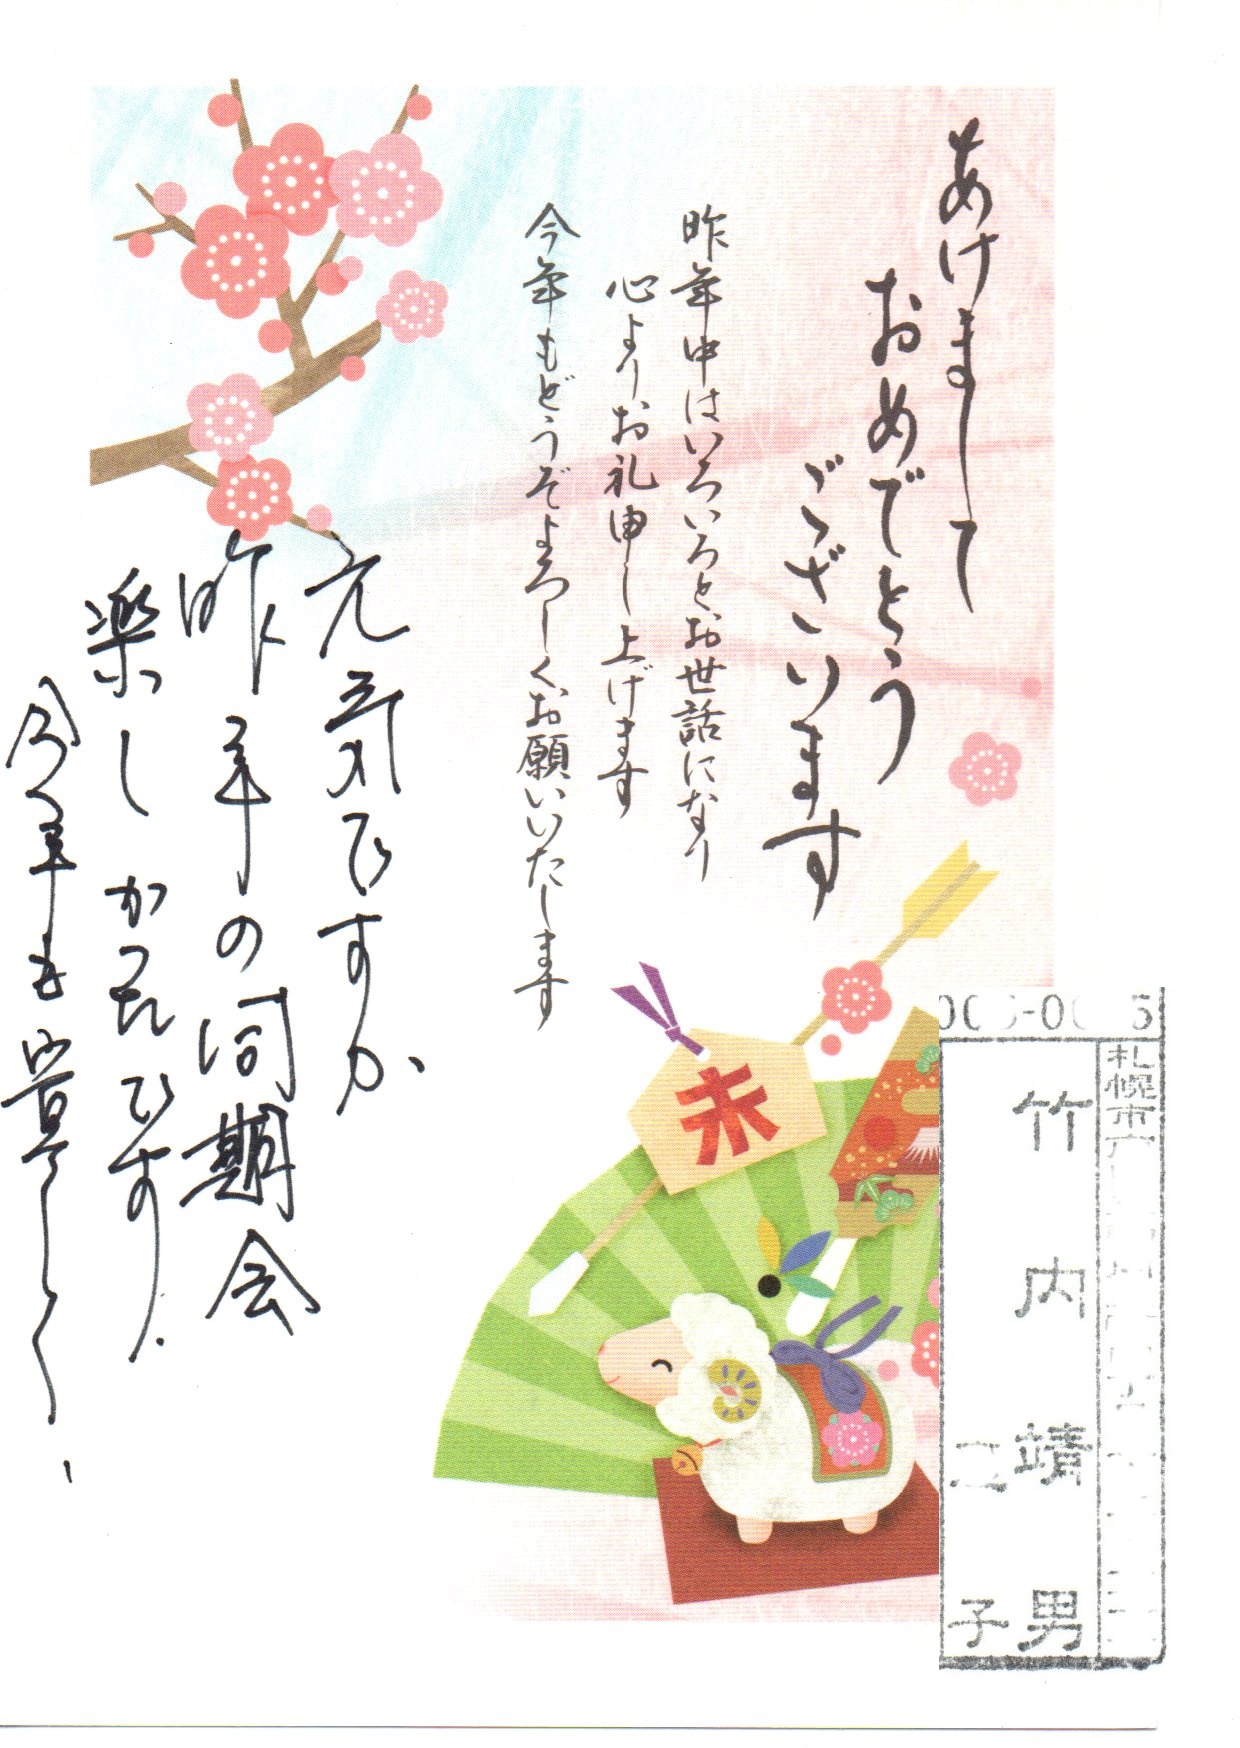 あけまして
おめでとう
ございます
昨年中はいろいろとお世話になり
心よりお礼申し上げます
今年もどうぞよろしくお願いいたします
元気ですか
昨年の同期会
楽しかったです
今年も宜しく
未
札幌市
竹内靖男
子